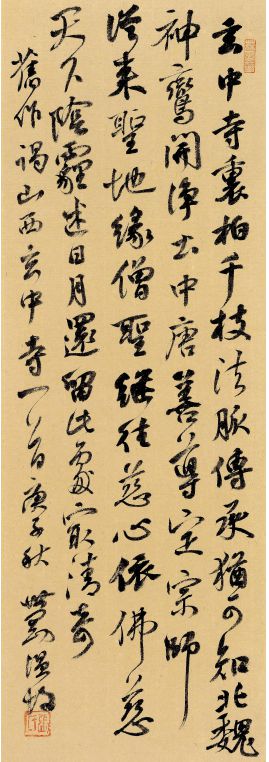 玄中寺裏柏千枝法脈傳承猶可知北魏
神鸞開淨土中唐善導定宗師
從來聖地緣僧聖繼往慈心依佛慈
天下陰霾迷日月還留此處最清奇
舊作謁山西玄中寺一首庚子秋